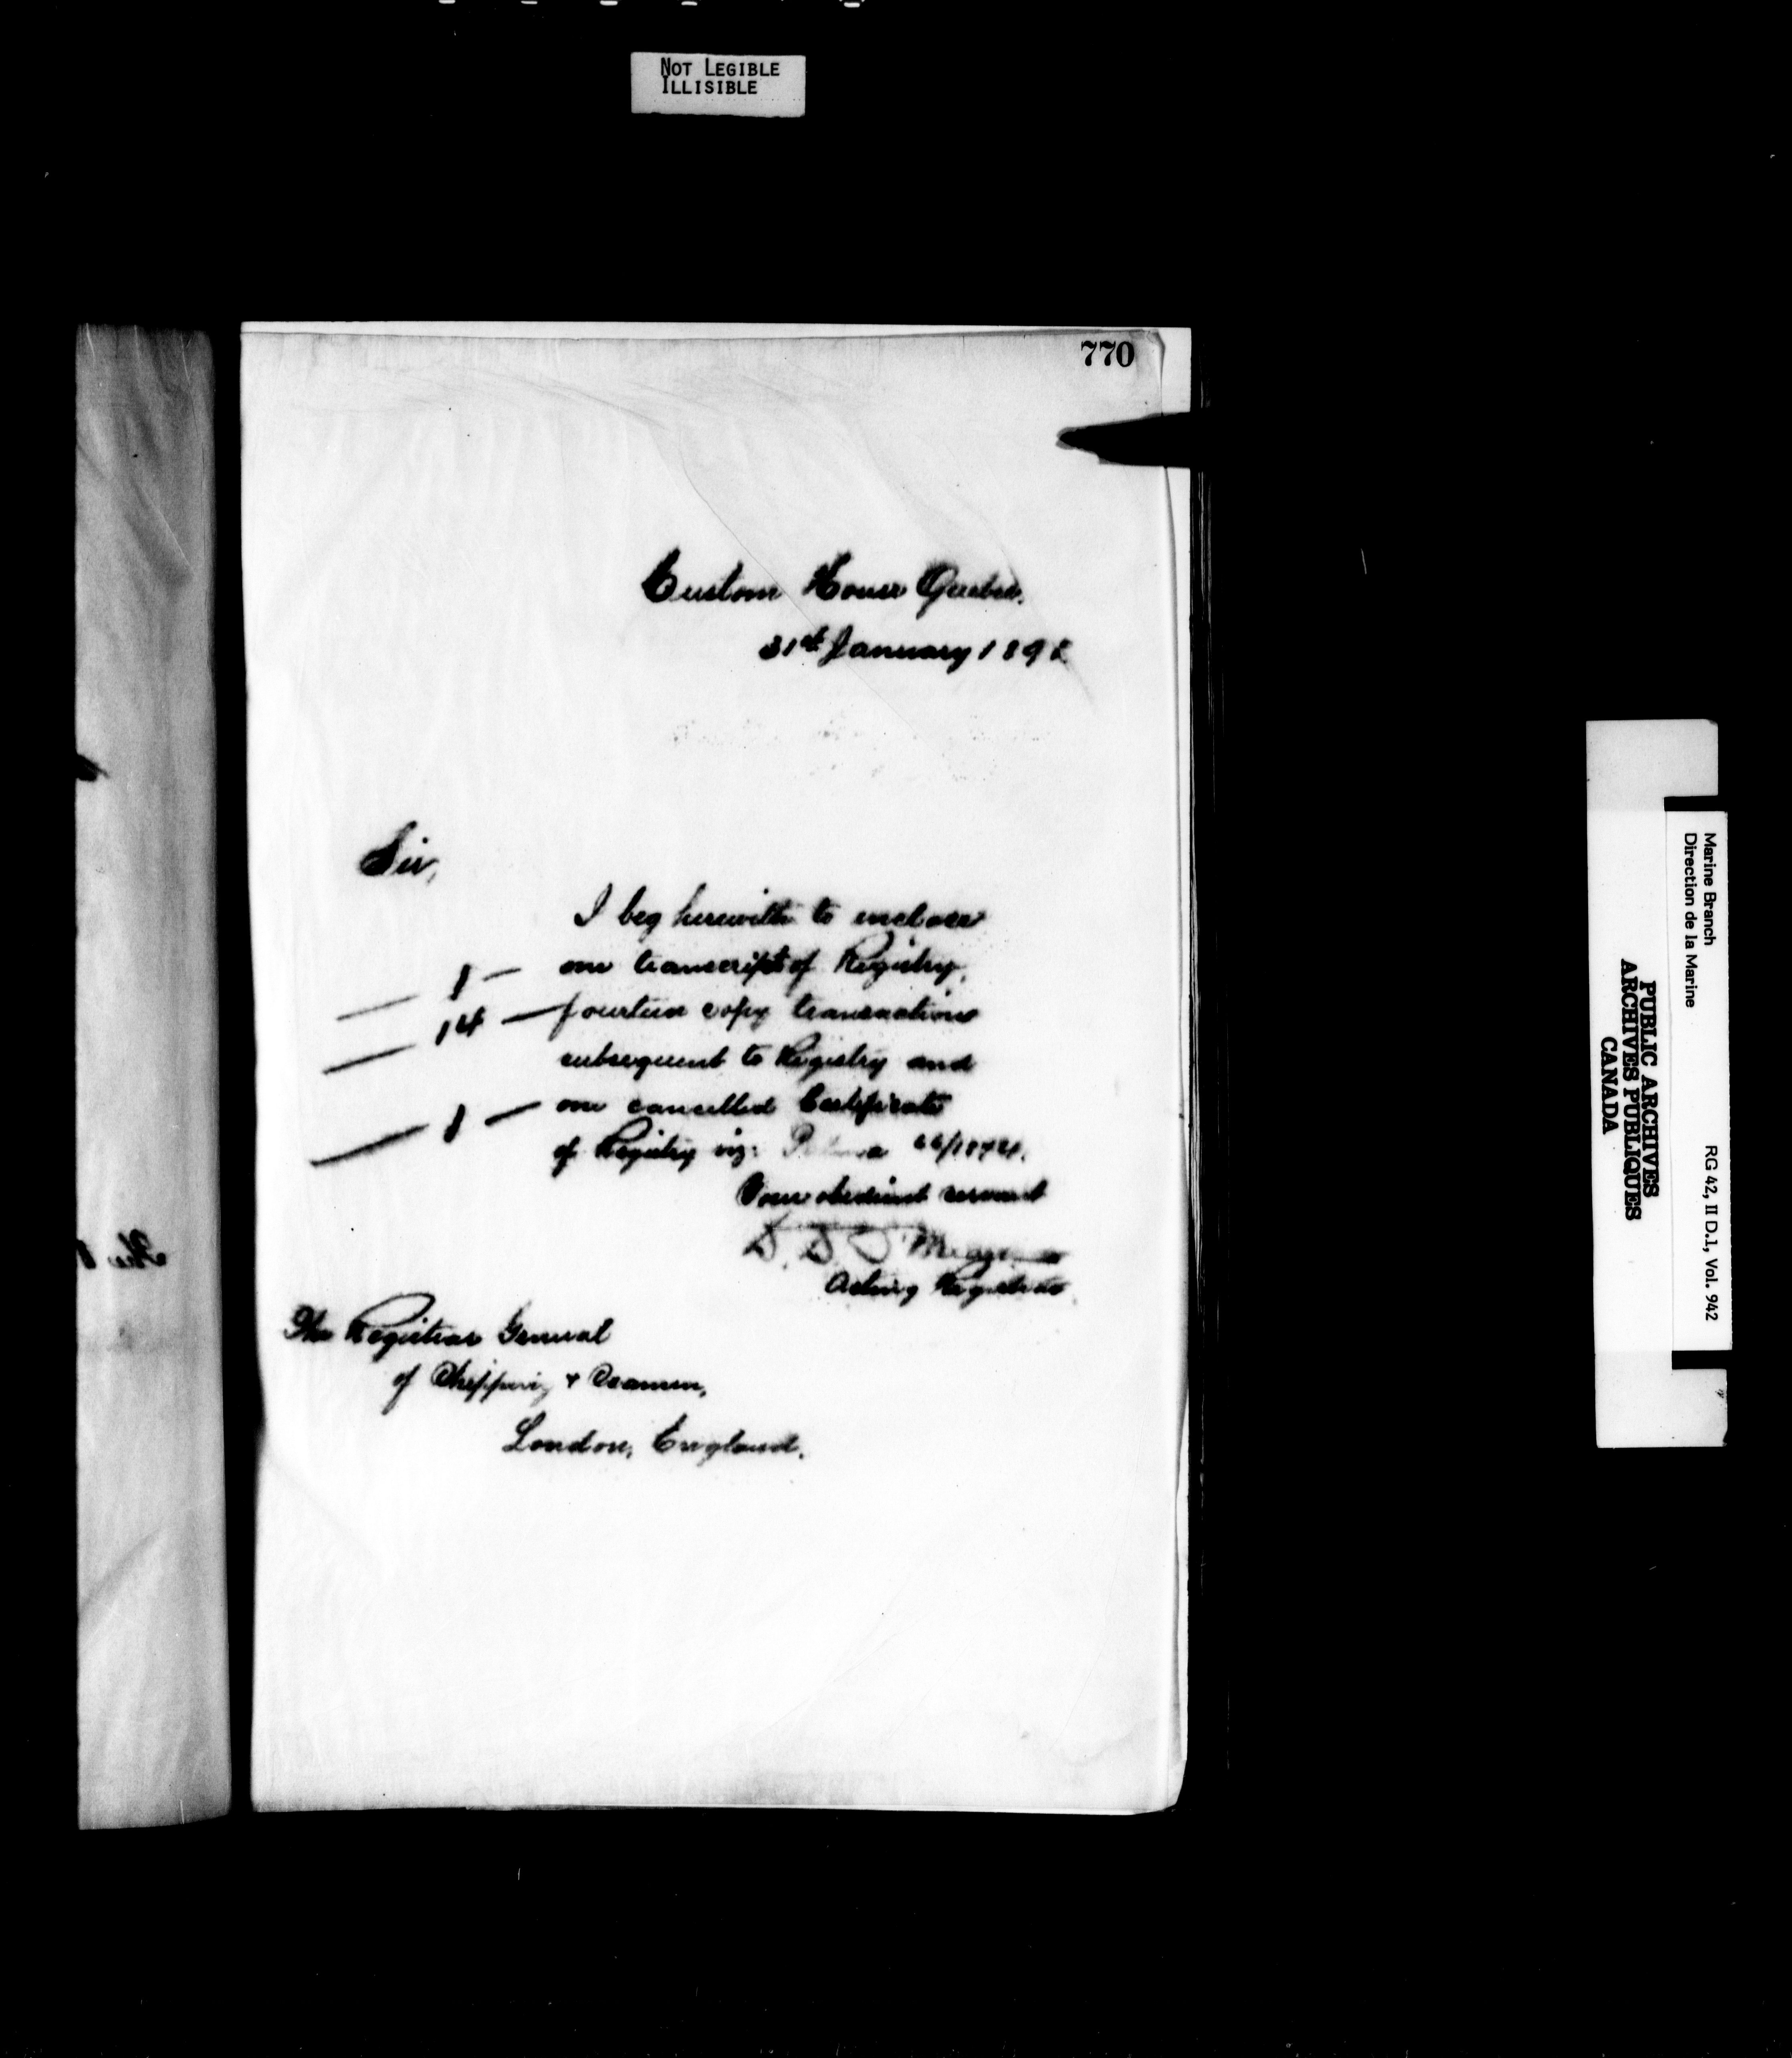 NOT LEGIBLE
ILLISIBLE
770
Custom House Quebec.
31st January 189
Sir,
I beg herewith to enclose
1 — one transcript of Registry,
14 — fourteen copy transactions
subsequent to Registry and
1 — one cancelled Certificate
of Registry viz:
Your obedient servant
Acting Registrar
The Registrar General
of Shipping & Seamen,
London, England.
Marine Branch
Direction de la Marine
RG 42, II D.1, Vol. 942
PUBLIC ARCHIVES
ARCHIVES PUBLIQUES
CANADA